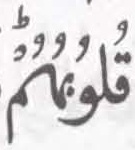 قُلُوۡبُهُمۡؕ